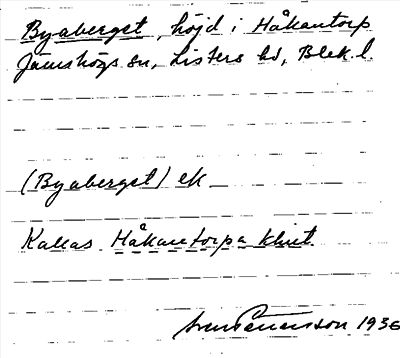 Byaberget, höjd i Håkantorp
Jämshögs sn, Listers hd, Blek. l.
(Byaberget) ek
Kallas Håkantorpa klint.
1936